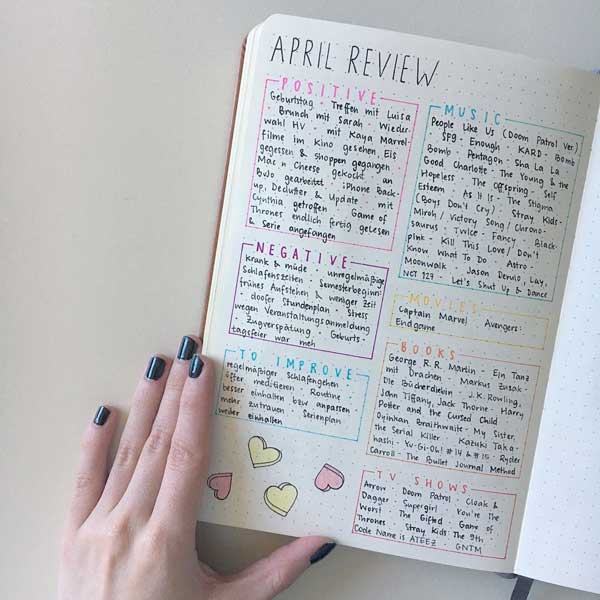 APRIL REVIEW
POSITIVE
Geburtstag · Treffen mit Luisa
· Brunch mit Sarah · Wieder-
wahl HV · mit Kaya Marvel-
filme im Kino gesehen, Eis
gegessen & shoppen gegangen
Mac n Cheese gekocht · an
BuJo gearbeitet · iPhone Back-
up, Declutter & Update · mit
Cynthia getroffen · Game of
Thrones endlich fertig gelesen
& Serie angefangen
NEGATIVE
krank & müde · unregelmäßige
Schlafenszeiten · Semesterbeginn:
frühes Aufstehen & weniger Zeit
· doofer Stundenplan · Stress
wegen Veranstaltungsanmeldung
· Zugverspätung · Geburts-
tagsfeier war meh
TO IMPROVE
regelmäßiger Schlafengehen ·
öfter meditieren · Routine
besser einhalten bzw anpassen ·
mehr zutrauen · Serienplan
weiter einhalten
MUSIC
People Like Us (Doom Patrol Ver.)
· SF9 - Enough · KARD - Bomb
Bomb · Pentagon - Sha La La ·
Good Charlotte - The Young & the
Hopeless · The Offspring - Self
Esteem · As It Is - The Stigma
(Boys Don't Cry) · Stray Kids -
Miroh / Victory Song / Chrono-
saurus · Twice - Fancy · Black-
pink - Kill This Love / Don't
Know What To Do · Astro -
Moonwalk · Jason Derulo, Lay,
NCT 127 - Let's Shut Up & Dance
MOVIES
Captain Marvel · Avengers:
Endgame
BOOKS
George R.R. Martin - Ein Tanz
mit Drachen · Markus Zusak -
Die Bücherdiebin · J.K. Rowling,
John Tiffany, Jack Thorne - Harry
Potter and the Cursed Child ·
Oyinkan Braithwaite - My Sister,
the Serial Killer · Kazuki Taka-
hashi - Yu-Gi-Oh! #14 & #15 · Ryder
Carroll - The Bullet Journal Method
TV SHOWS
Arrow · Doom Patrol · Cloak &
Dagger · Supergirl · You're the
Worst · The Gifted · Game of
Thrones · Stray Kids: The 9th ·
Code Name is ATEEZ · GNTM